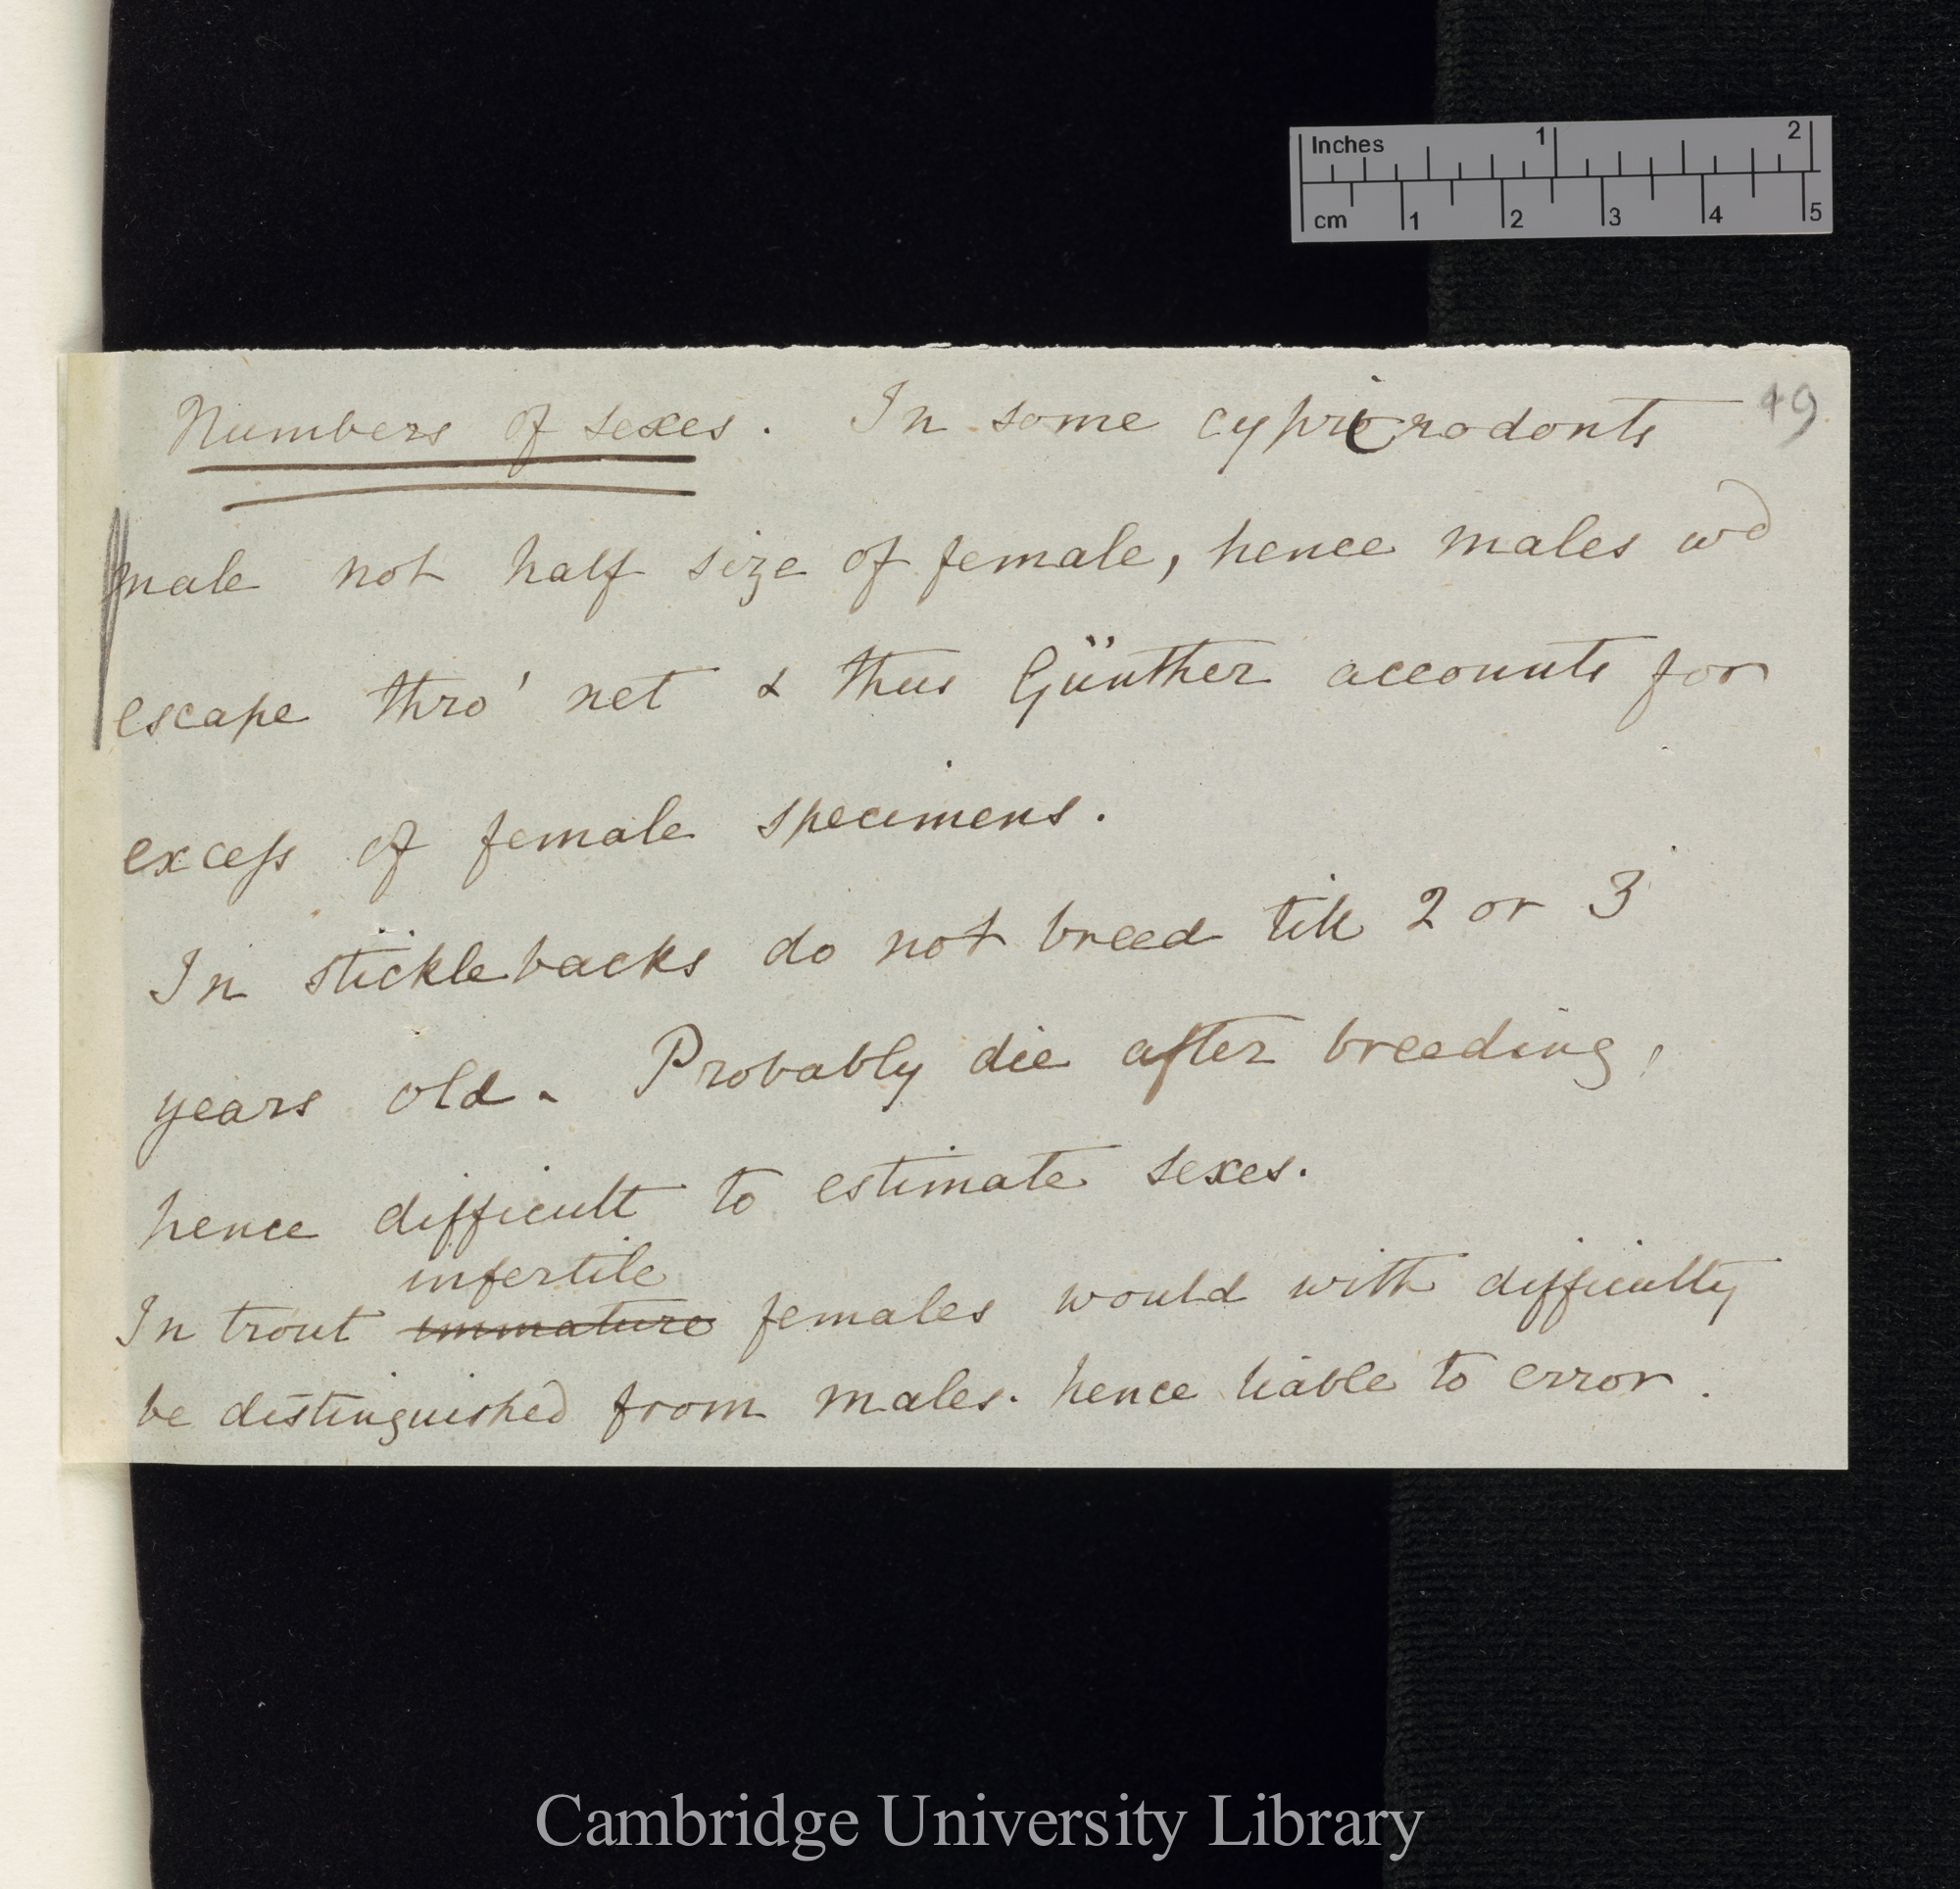 Inches 1 2
cm 1 2 3 4 5
49
Numbers of sexes. In some cyprinodonts
male not half size of female, hence males wd
escape thro' net & thus Günther accounts for
excess of female specimens.
In sticklebacks do not breed till 2 or 3
years old. Probably die after breeding,
hence difficult to estimate sexes.
infertile
In trout immature females would with difficulty
be distinguished from males. hence liable to error.
Cambridge University Library